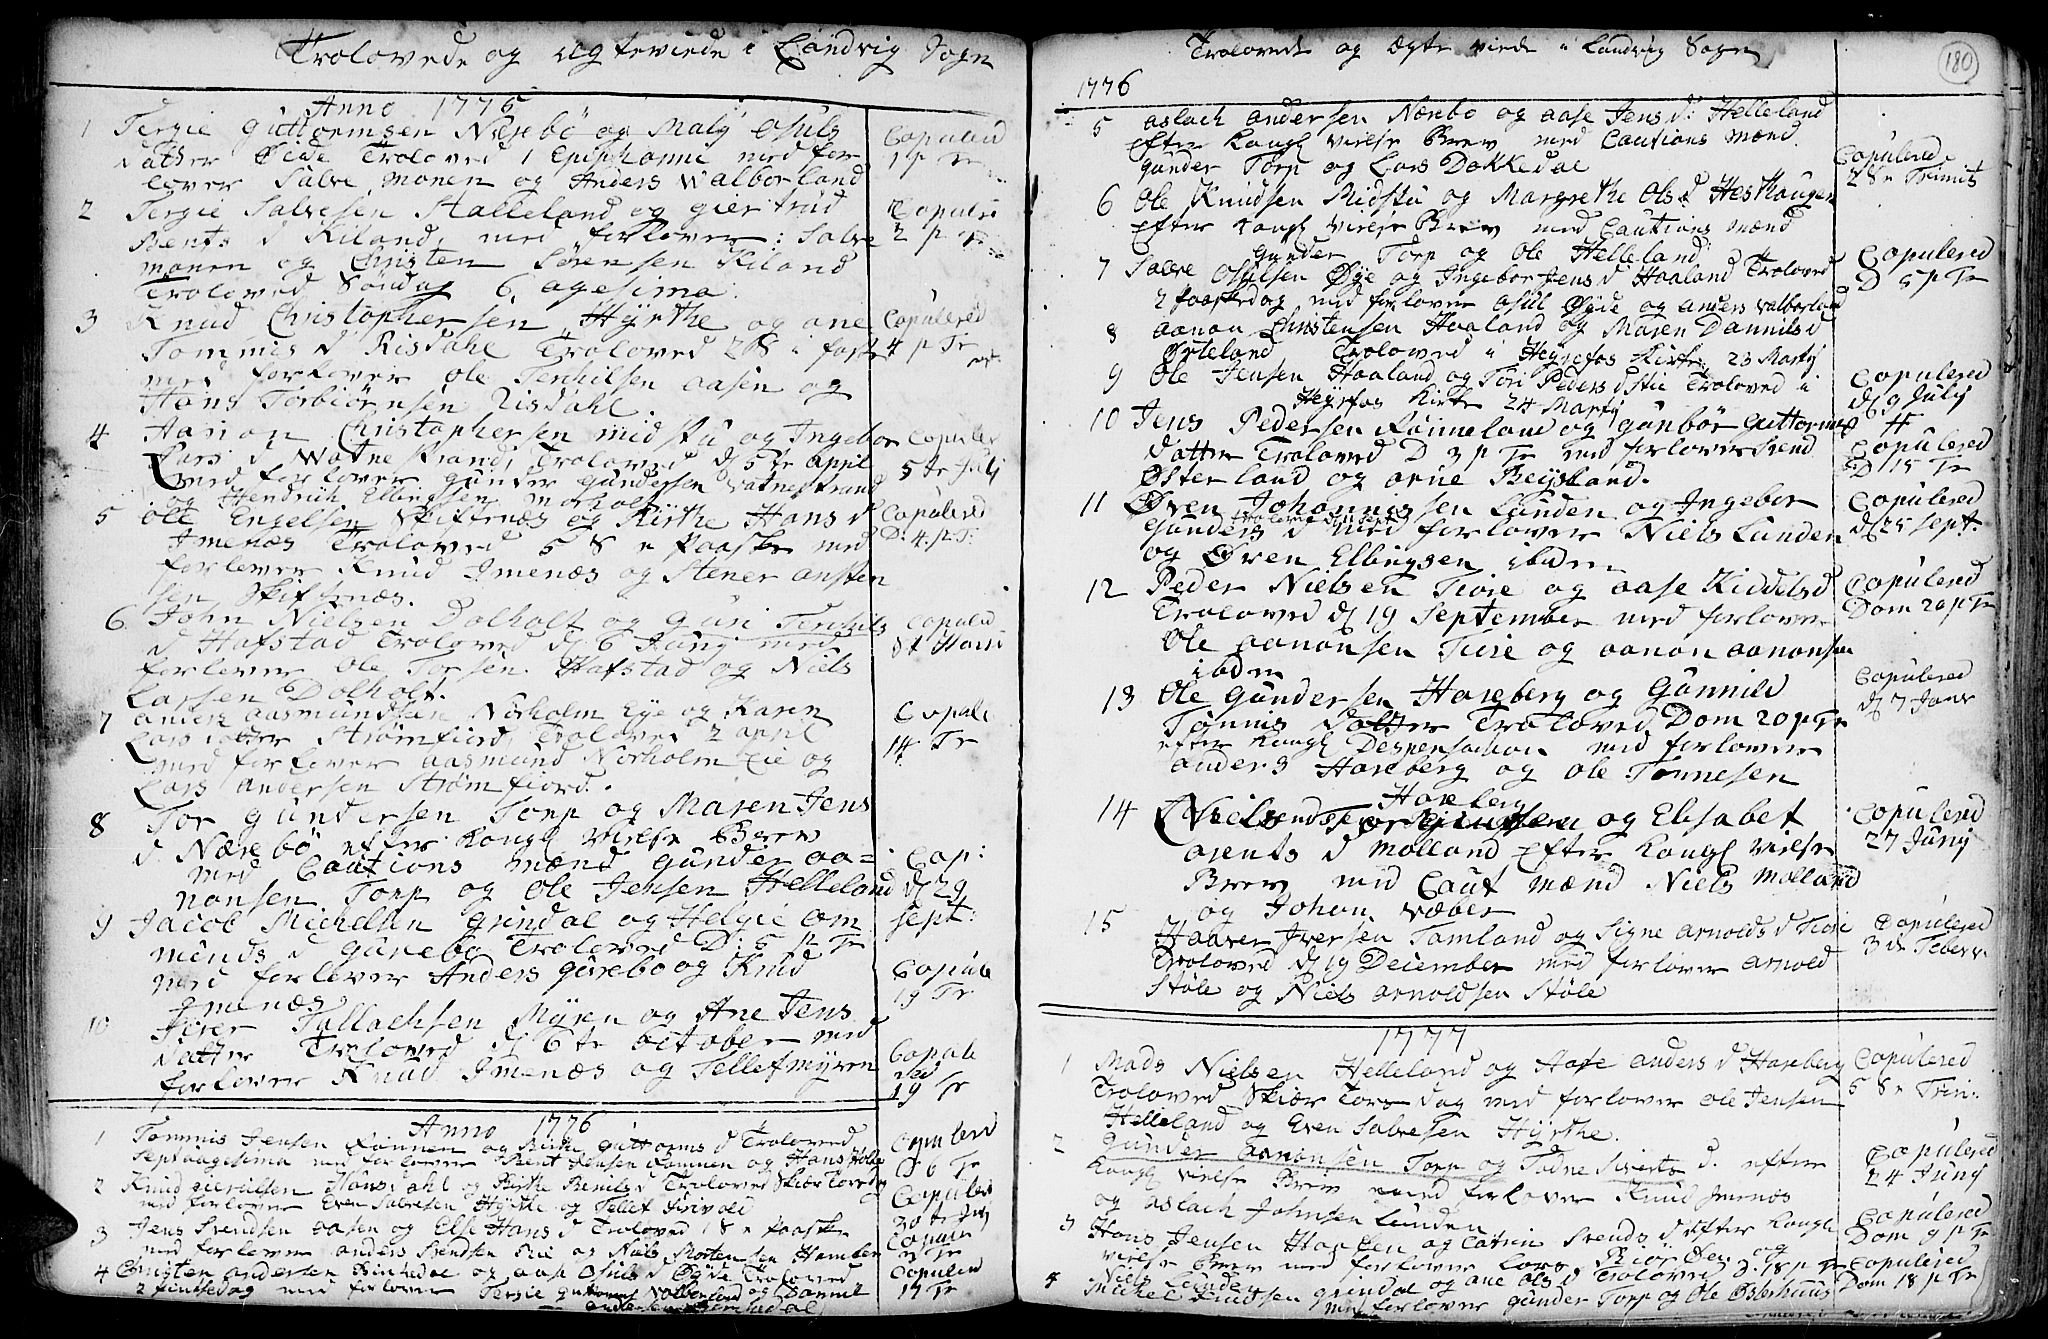 Trolovede og Ægteviede i Landvig Sogn
Anno 1775
1 Tergie Guttormsen Nærebø og Maly Osuls
datter Øide Troloved 1 Epiphanie med for
lover Salve Monen og Anders Walborland
Copulerd
1 p Tr
2 Tergie Salvesen Halleland og giertrud
Bents d Kiland, med forlover: Salve
monen og Christen Sørensen Kiland
Troloved Søndag 6agesima.
Copuler
2 p Tr
3 Knud Christophersen Hyrthe og ane
Tommis d Risdahl Troloved 2 S i faste
med forlover Ole Terchilsen aasen og
Hans Torbiørnsen Risdahl.
Copulered
4 p Tr
4 Aanon Christophersen midstu og Ingebor
Lars d Watnestrand, Troloved d 5te april
med forlover gunder gundersen Vatnestrand
og Hendrich Ellingsen morholt
Copuler
5te July
5 Ole Engelsen Skiftenæs og Kirthe Hans d
Imenæs Troloved 5 S e Paaske med
forlover Knud Imenæs og Stener ansten
sen Skiftenæs.
Copulered
D: 4 p Tr:
6 John Nielsen Dolholt og Guri Terchils
d Hafstad Troloved d 6 Juny med
forlover Ole Torsen Hafstad og Niels
Larsen Dolholt.
Copulerd
7 anders aasmundsen Norholm Eye og Karen
Lars datter Strømfiord, Trolovet 2 april
med forlover aasmund Norholm Eie og
Lars andersen Strømfiord.
Copule
14 Tr
8 Tor gundersen Torp og Maren Jens
d Nærebø efter Kongl vielse Brev
med Cautions mænd gunder aa=
nonsen Torp og Ole Jensen Helleland
Cop:
d 29
sept:
9 Jacob Michelsen Grindal og Helgie Om
munds d Gurebo Trolovet D: 5 p Tr
med forlover Anders gurebo og Knud
Imenæs
Copule
19 Tr
10 Peder Tallachsen Myren og Ane Jens
datter Trolovet d 6te october med
forlover Knud Imenæs og Tellef myren
Copule
red
19 Tr
Anno 1776
1 Tommis Jensen Rønnen og Kirthe Guttorms d Troloved
Septuagesima med forlover Brent Jensen Rønnen og Hans
Copulerd
D 6 Tr
2 Knud
med forlover Even Salvesen Hyrthe og Tellef
Copulerd
3 Jens Svendsen aasen og Else Hans d Trolovet 1 S e Paaske
med forlover anders Svendsen Eie og Niels Mortensen
Copuler
Tr
4 Christen andersen Birchedal og aase Osuls d Øyde Trolovet
2 pindsedag med forlover Tergie guttorms Nalborland og Daniel
andersen Birchedal
Copulerd
17 Tr
Trolovede og Ægte viede i Landvig Sogn
180
1776
5 aslach andersen Nærebo og aase Jens d: Helleland
Efter Kongl vielse Brev med Cautions mænd
gunder Torp og Lars Dokkedal
Copulered
2 S e Trinit
6 Ole Knudsen Midstu og Margrethe Ols d Heskaugen
Efter Kongl vielse Brev med Cautions mænd
gunder Torp og Ole Helleland
Copulered
D 5 p Tr
7 Salve Osulsen Øye og Ingebor Jens d Haaland Trolovet
2 paaskedag med forlover Osul Øyde og anders Valborland
8 aanon Christensen Haaland og Maren Daniels d
Østeland Trolovet i Heyrefos Kirke 23 Marty
9 Ole Jensen Haaland og Tori Peders d Stie Trolovet i
Heyrefos Kirke 24 Marty
Copulered
d 9 July
10 Jens Pedersen Rønneland og gunbor guttorms
datter Trolovet D 3 p Tr med forlover Svend
Østerland og arne Beysland.
Copulered
D 15 Tr
11 Øven Johannissen Lunden og Ingebor
Gunders d med forlover Niels Lunden
og Øven Ellingsen ibidem
Copulered
d 25 Sept.
12 Peder Nielsen Tiøre og aase Kiddels d
Trolovet d 19 September med forlover
Ole aanonsen Tiøre og aanon aanonsen
ibdem
Copulered
Dom 20 p Tr
13 Ole Gundersen Hareberg og Gunnild
Tønnis datter Trolovet Dom 20 p Tr
efter Kongl Despensasion med forlover
anders Hareberg og Ole Tønnesen
Hareberg
Copulered
d 7 Janr
14 Niels og Elisabet
arents d Molland Efter Kongl vielse
Brev med Caut mænd Niels Molland
og Johan Wæber
Copulered
27 Juny
15 Haaver Iversen Tamland og Signe arnolds d Tiøre
Trolovet d 19 December med forlover arnold
Støle og Niels arnoldsen Støle
Copulered
3 de Febrv.
1777
1 Mads Nielsen Helleland og Aase anders d Hareberg
Trolovet Skiær Tors dag med forlover Ole Jensen
Helleland og Even Salvesen Hyrthe.
Copulered
5 S e Trin:
2 Gunder aanonsen Torp og Todne Siverts d. efter
Kongl vielse Brev med forlover Knud Imenæs
og aslach Johnsen Lunden
Copulered
24 Juny
3 Hans Jensen og Catrin Svends d efter Kongl
vielse Brev med forlover Lars og
Niels Lunden
Copulered
Dom 9 p Tr
4 Michel Knudsen grindal og ane Ols d Trolovet D. 18 p Tr
med forlover gunder Torp og Ole Østerhuus
Copulered
Dom 18 p Tr